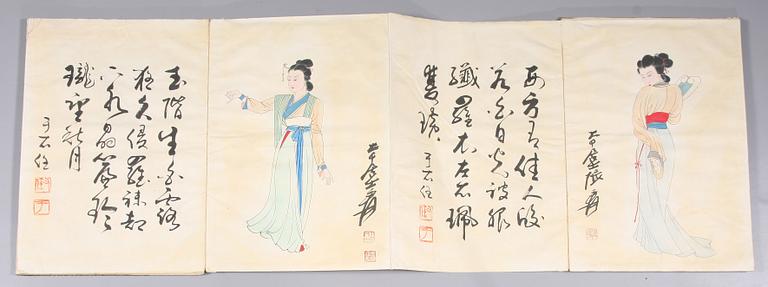 大千張爰
西方有佳人皎
若白日光被服
纖羅衣左右珮
雙璜
于右任
大千居士爰
玉階生白露
夜久侵羅袜却
下水晶簾玲
瓏望秋月
于右任